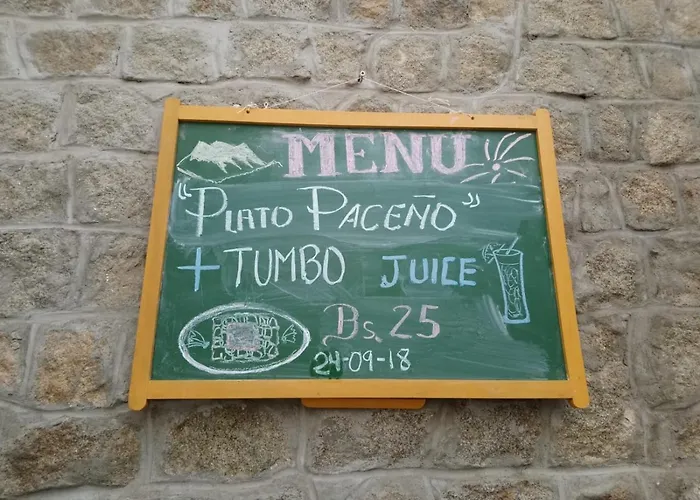 MENU
"PLATO PACEÑO"
+ TUMBO JUICE
Bs. 25
24-09-18